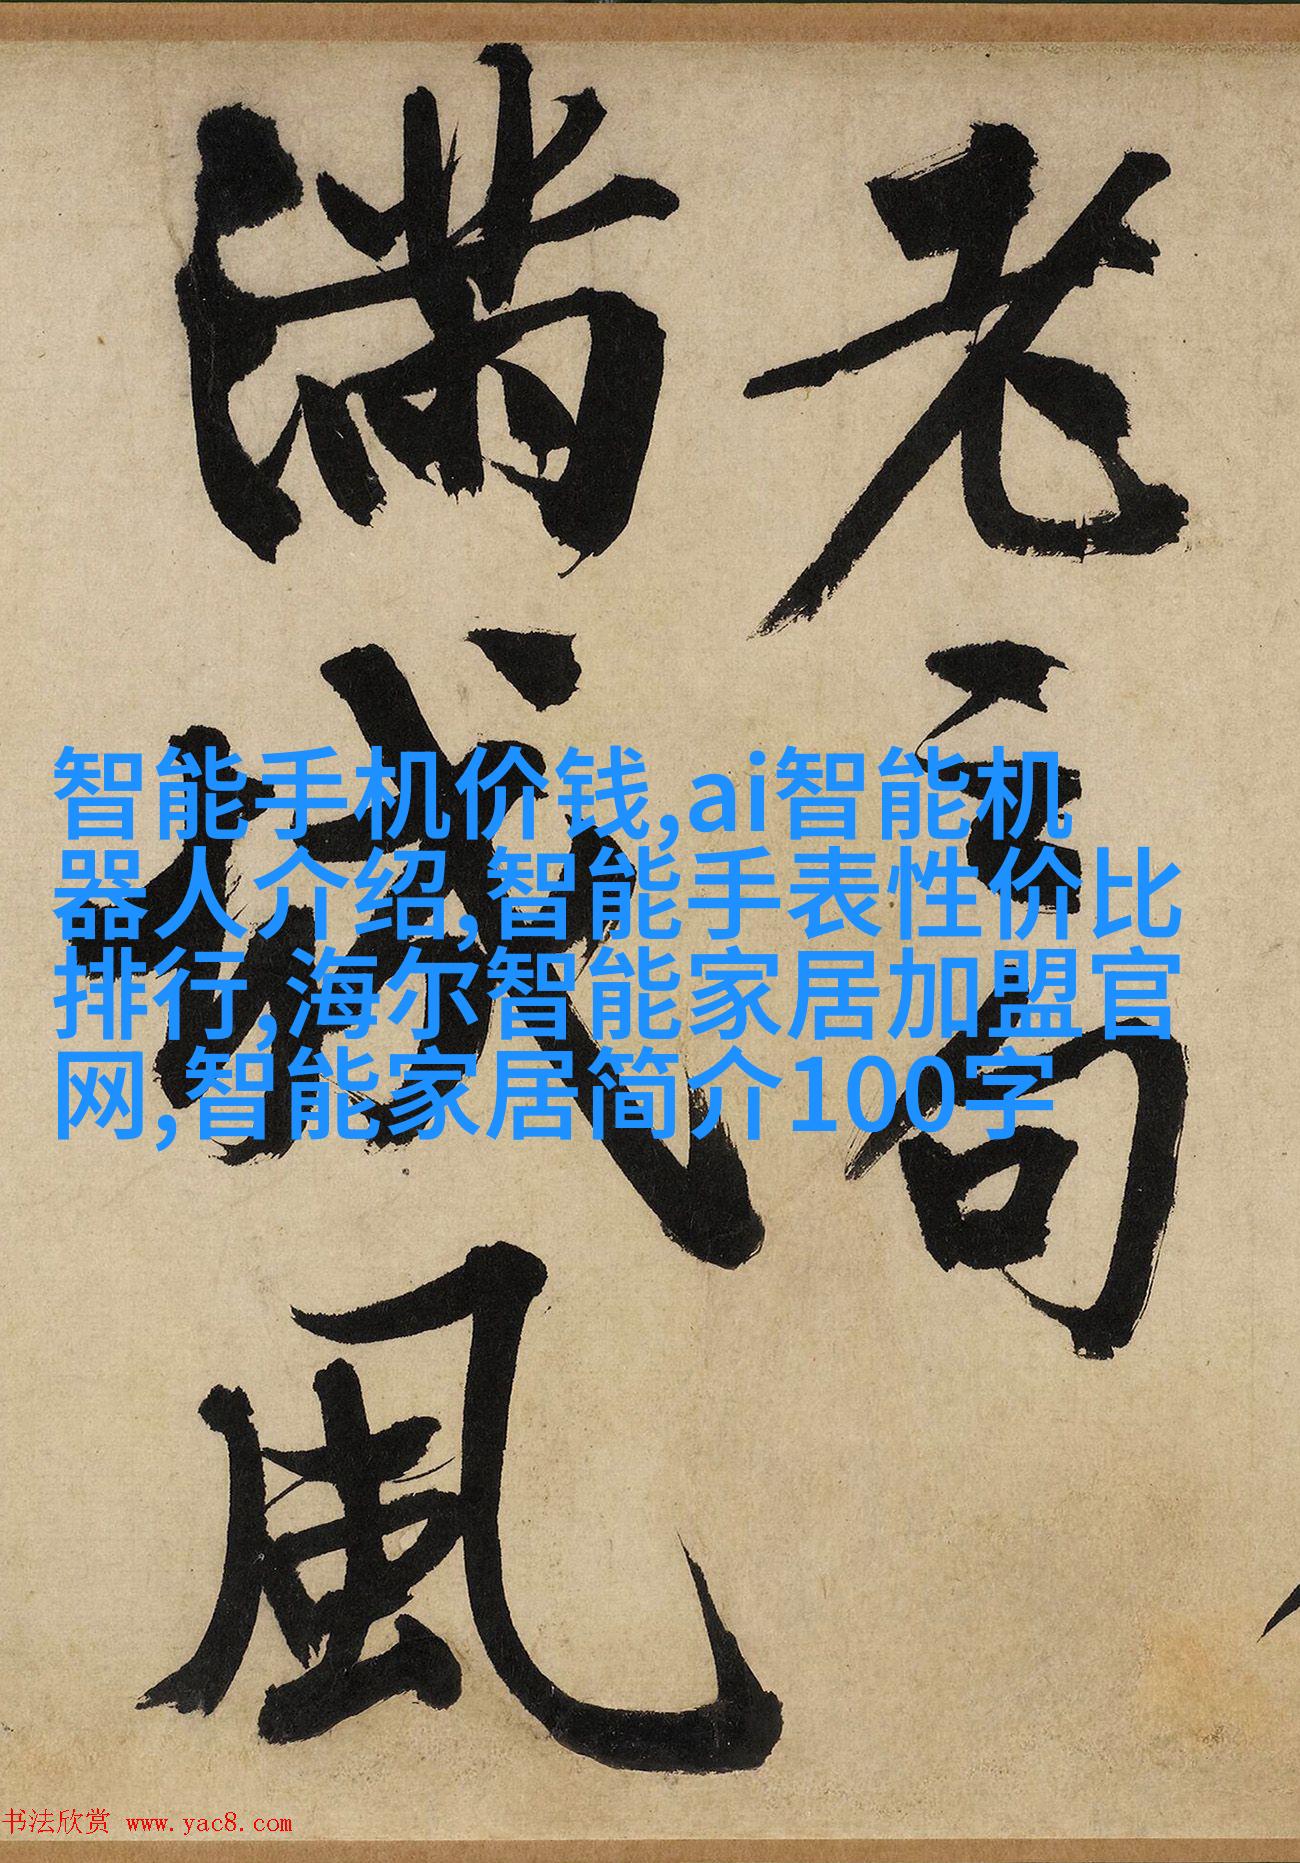 老句
滿城風
智能手机价钱,ai智能机
器人介绍,智能手表性价比
排行,海尔智能家居加盟官
网,智能家居简介100字
书法欣赏 www.yac8.com